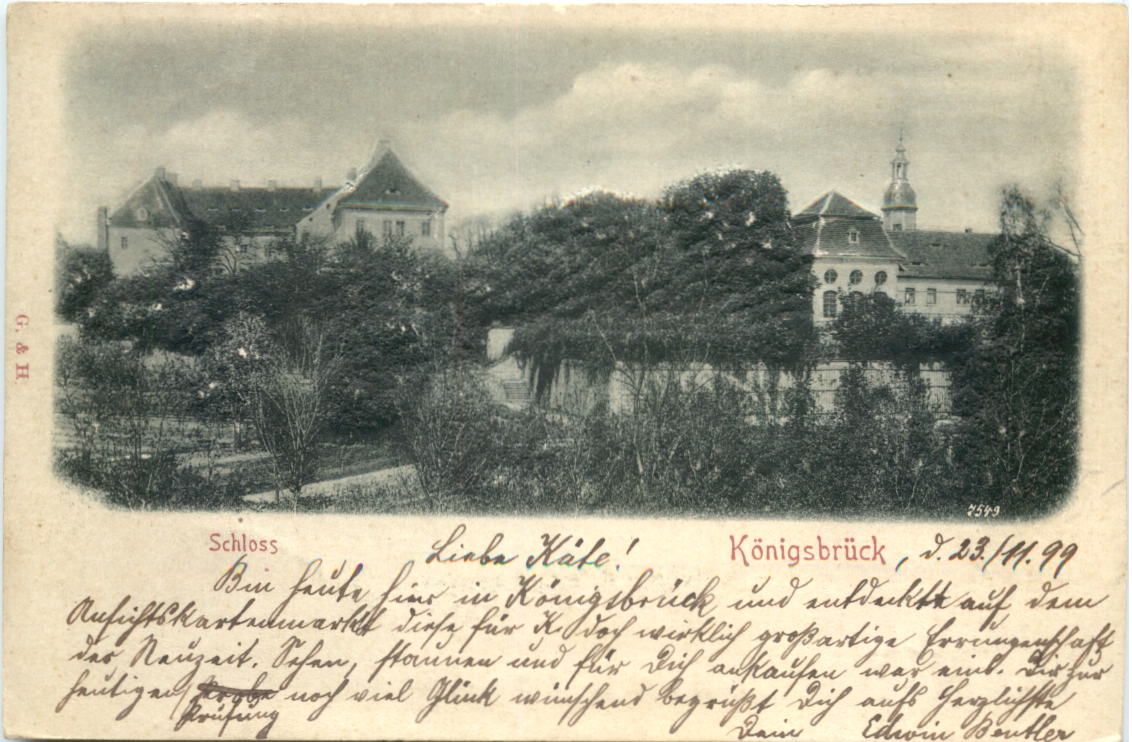 G. & H.
7549
Schloss
Königsbrück, d. 23./11. 99
Liebe Käte!
Bin heute hier in Königsbrück und entdeckte auf dem
Ansichtskartenmarkt diese für K. doch wirklich großartige Errungenschaft
der Neuzeit. Sehen, staunen und für Dich ankaufen war eins. Dir zur
heutigen Prüfung noch viel Glück wünschend begrüßt Dich aufs Herzlichste
Dein Edwin Beutler